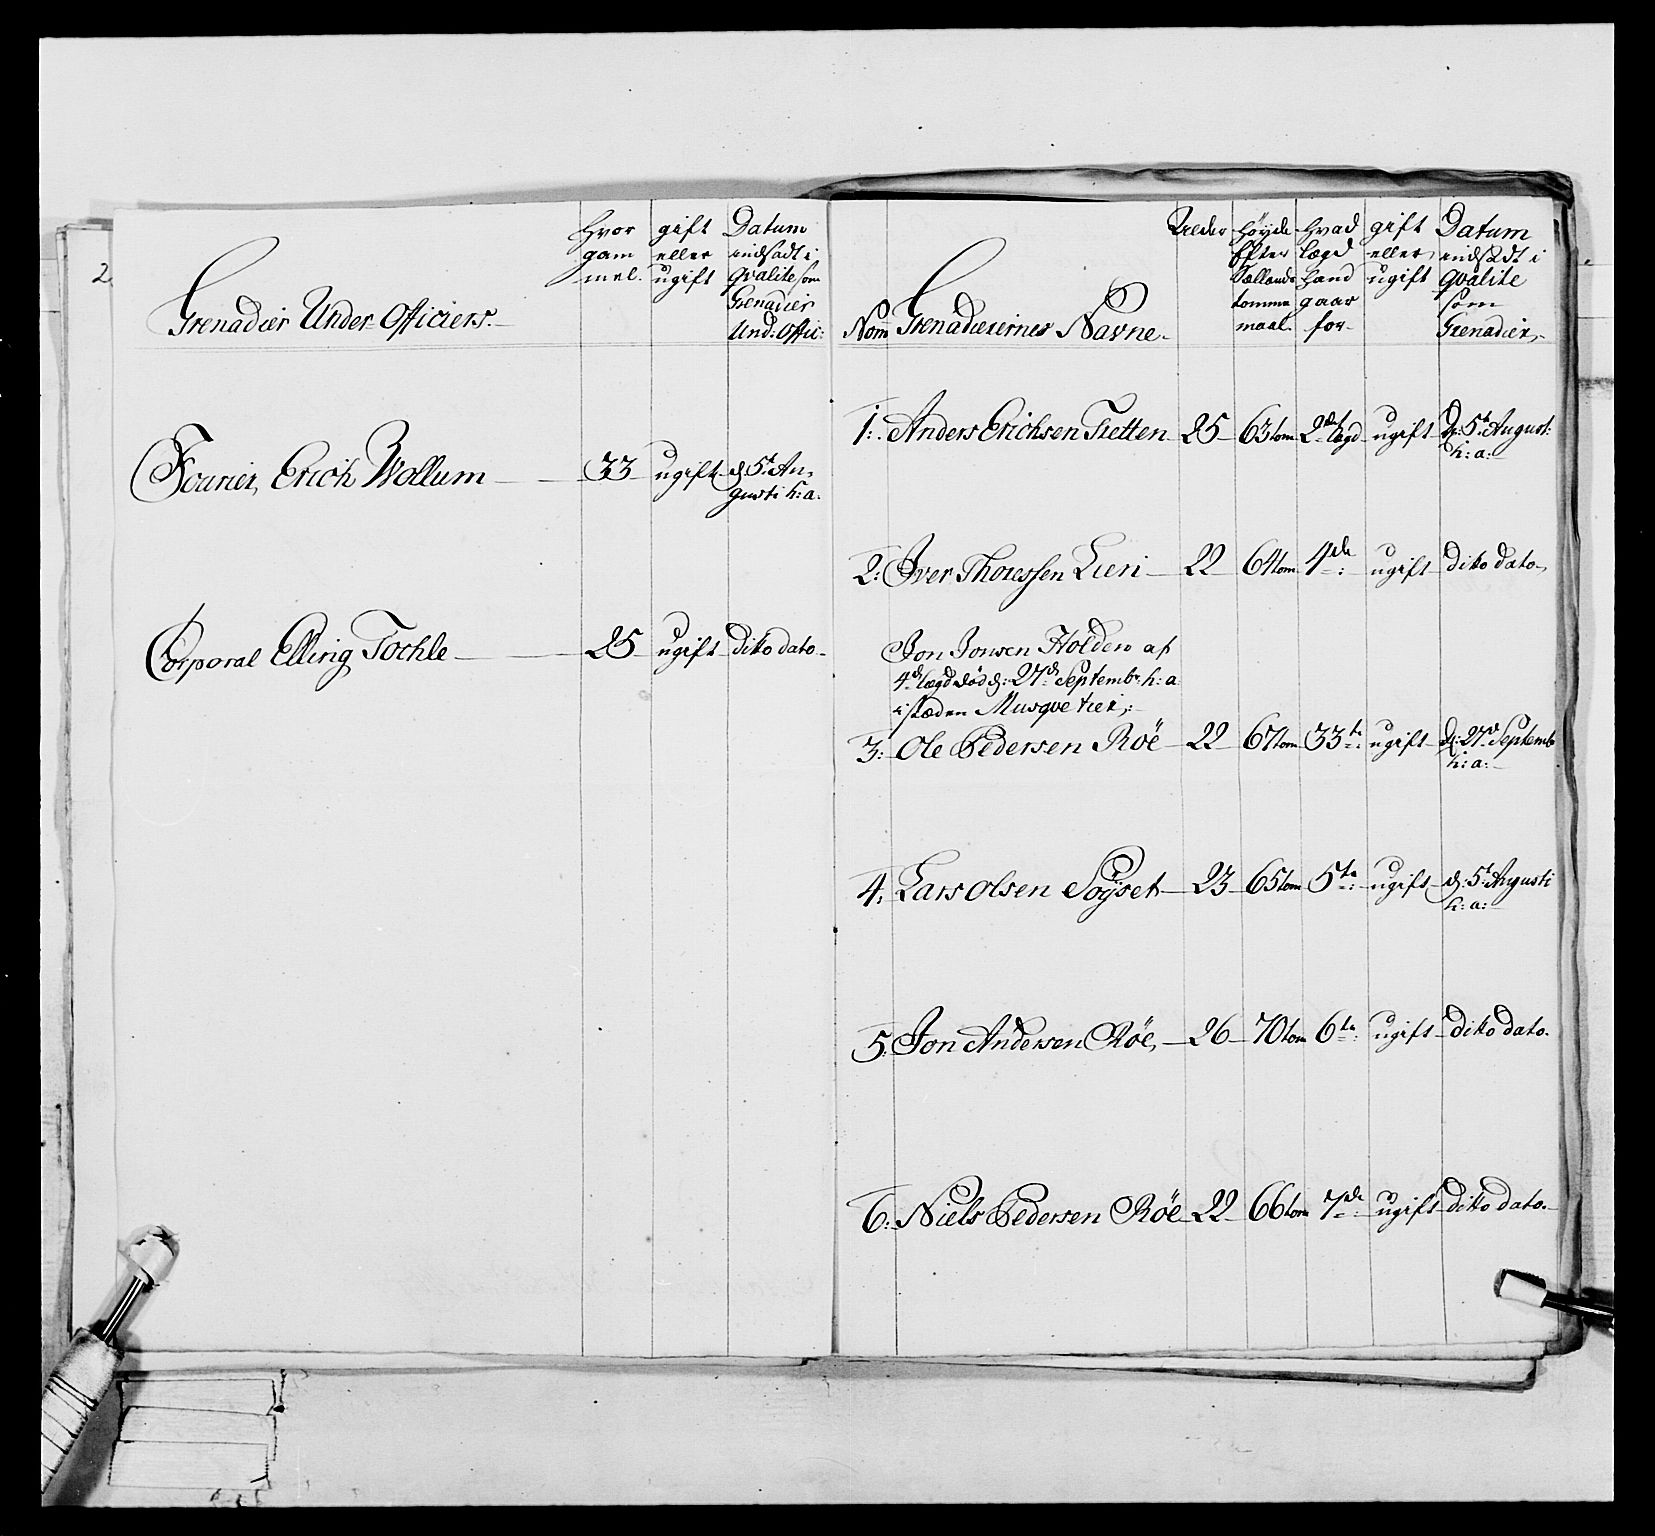 2
Grenadier Under Officiers.
Hvor gam mel.
gift eller ugift
Datum indsadt i Qvalite som Grenadier Und: Offici:
Fourier, Erich Wollum 33 ugift d: 5t Au,
gusti h: a.
Corporal Elling Tochle 25 ugift dito dato
Nom
Grenadierernes Navne.
Alder
Høyde Efter Siællands tomme maal
Hvad Lægd Hand gaar for
gift eller ugift
Datum indsadt i Qvalite som Grenadier,
1: Anders Erichsen Tretten 25 63 tom 2det Lægd ugift d: 5t August:
h: a:
2: Iver Thoressen Lien 22 64 tom 4de: ugift dito dato
Jon Jonsen Holden af
4de Lægd død d: 27de Septembr: h: a
i stæden Musqvetier,:
3: Ole Pedersen Röe 22 67 tom 33te: ugift d: 27de Septemb
h: a:
4: Lars Olsen Söyset 23 65 tom 5te: ugift d: 5t Augusti
h: a:
5: Jon Andersen Röe, 26 70 tom 6te: ugift dito dato.
6: Niels Pedersen Röe 22 66 tom 7de: ugift dito dato.